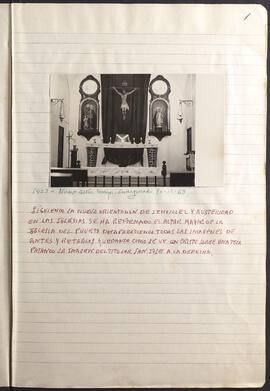 1
SIGUIENDO LA NUEVA ORIENTACION DE SENCILLEZ Y AUSTERIDAD
EN LAS IGLESIAS SE HA REFORMADO EL ALTAR MAYOR DE LA
IGLESIA DEL PUERTO DESAPARECIENDO TODAS LAS IMAGENES DE
ANTES Y RETABLOS QUEDANDO COMO SE VE UN CRISTO SOBRE UNA TELA
Y LA IMAGEN DEL TITULAR SAN JOSE A LA DERECHA.